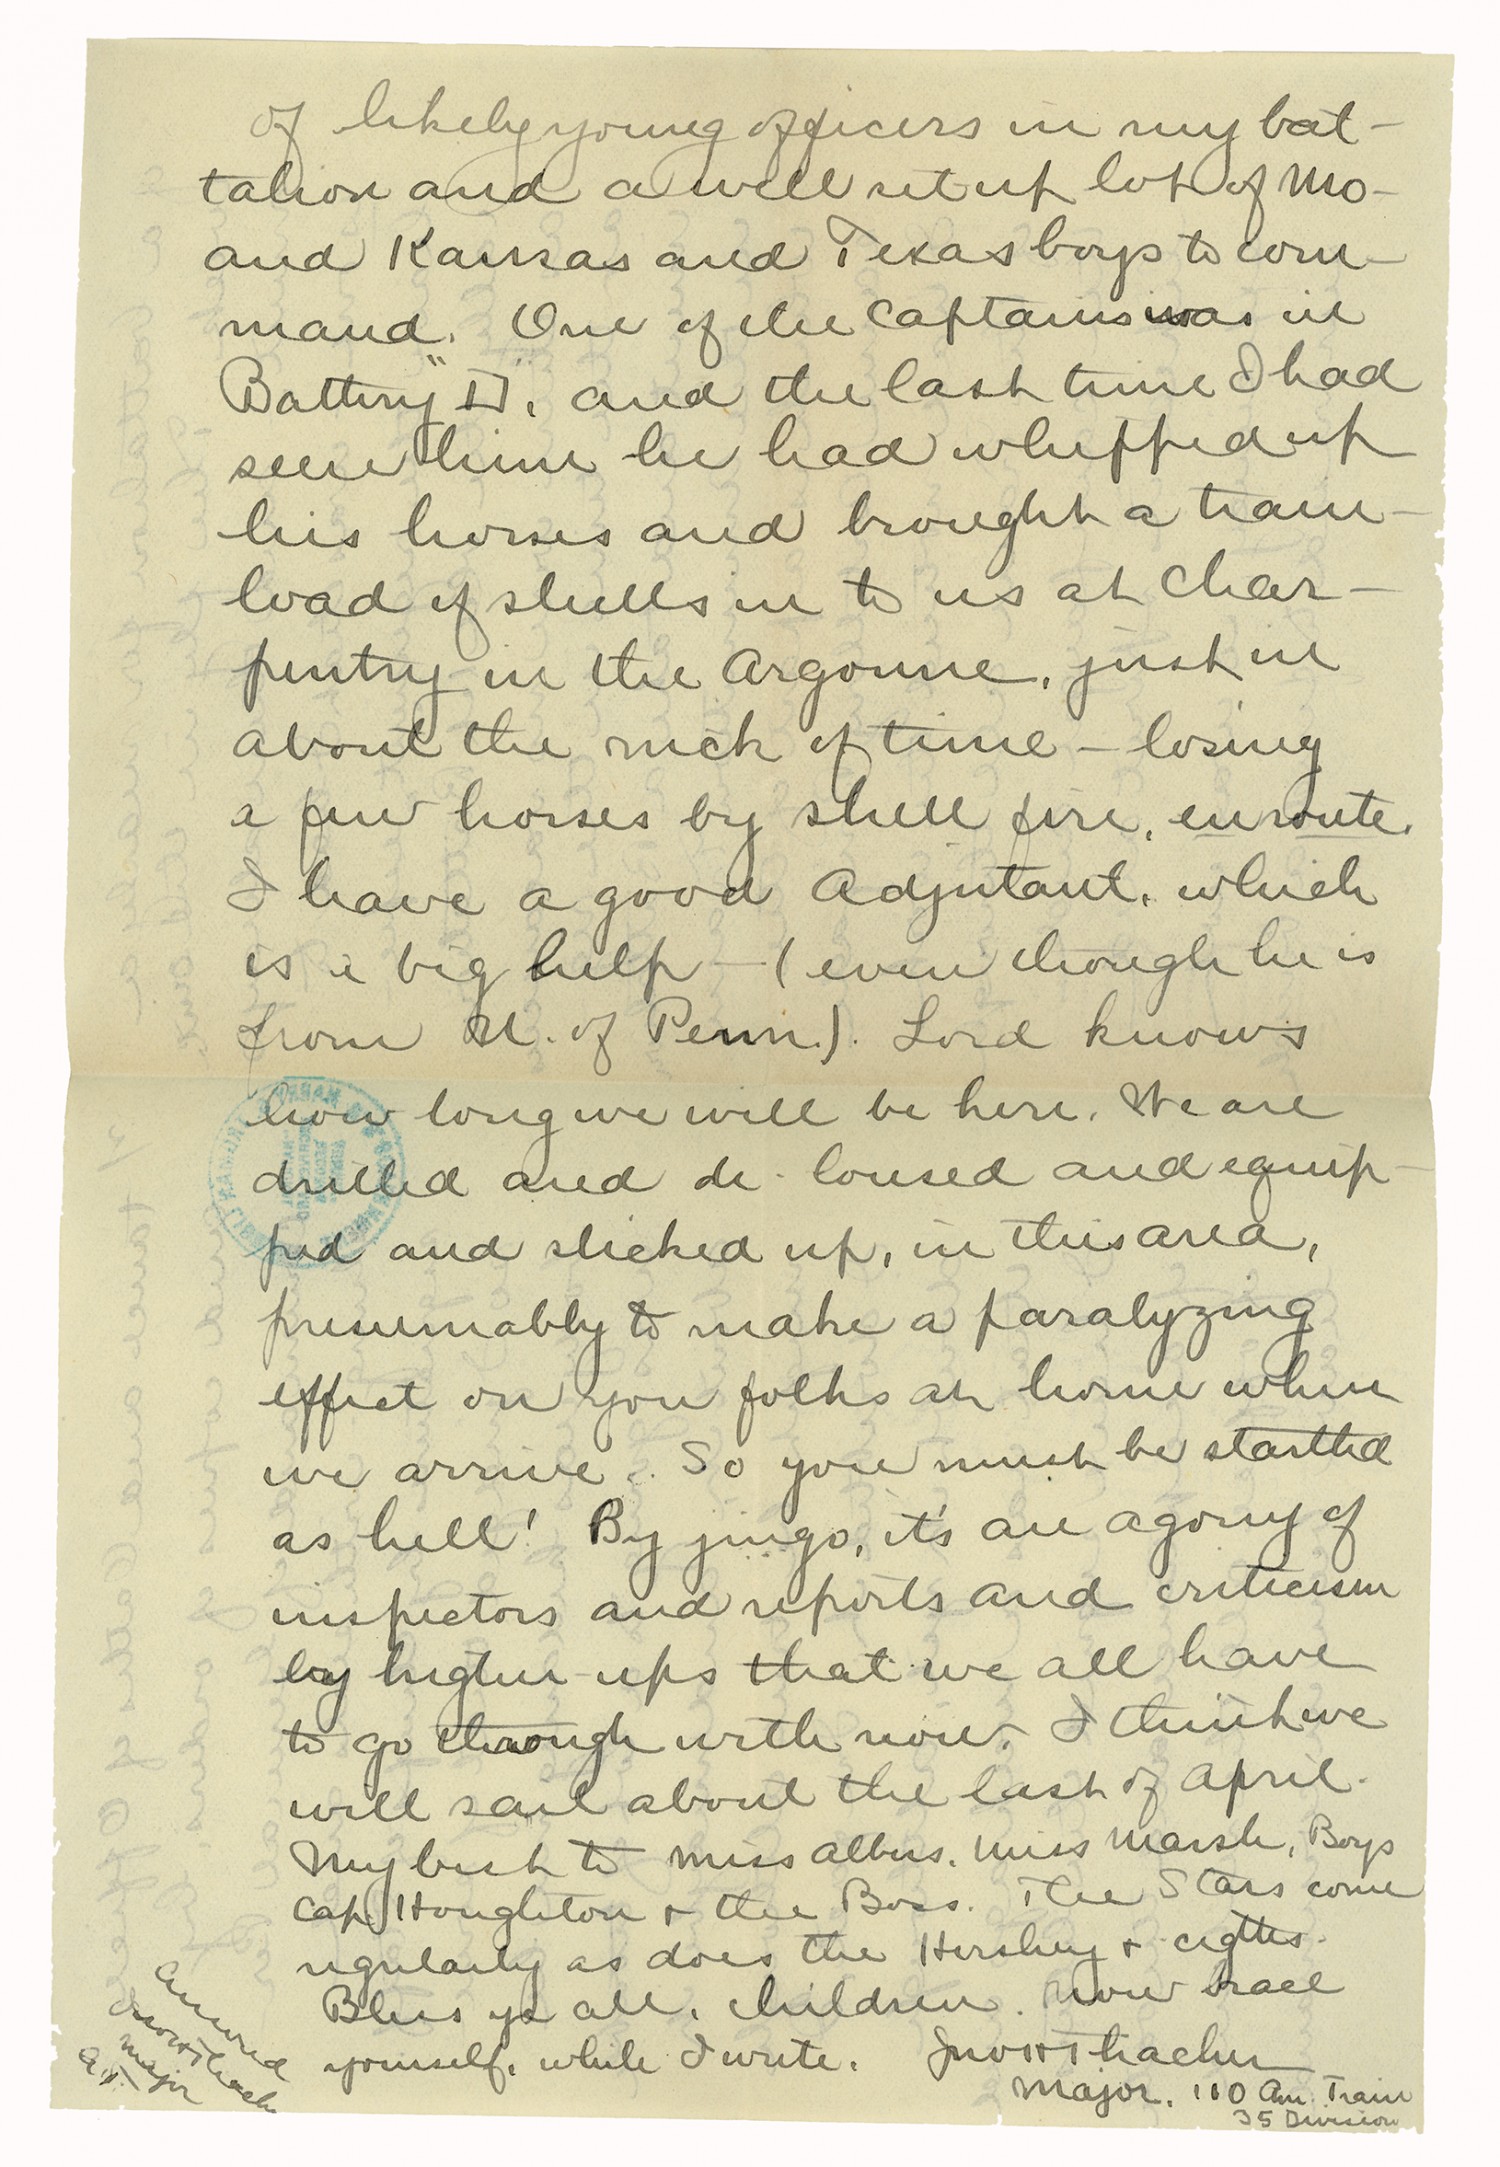 of likely young officers in my bat-
talion and a well set up lot of Mo-
and Kansas and Texas boys to com-
mand. One of the Captains was in
Battery "D", and the last time I had
seen him he had whipped up
his horses and brought a train-
load of shells in to us at Char-
pentry in the Argonne, just in
about the nick of time - losing
a few horses by shell fire, enroute.
I have a good Adjutant, which
is a big help - (even though he is
from U. of Penn.). Lord knows
how long we will be here. We are
drilled and de-loused and equip-
ped and slicked up, in this area,
presumably to make a paralyzing
effect on you folks at home when
we arrive. So you must be startled
as hell! By jingo, it's an agony of
inspectors and reports and criticism
by higher-ups that we all have
to go through with now. I think we
will sail about the last of April.
My best to Miss Albus, Miss Marsh, Boys
Cap Houghton + the Boss. The Stars come
regularly as does the Hershey + cigttes.
Bless ye all, children. Now brace
yourself, while I write. Jno H Thacher
Major, 110 Am. Train
35 Division
Censored
Jno H Thacher
Major
A.T.